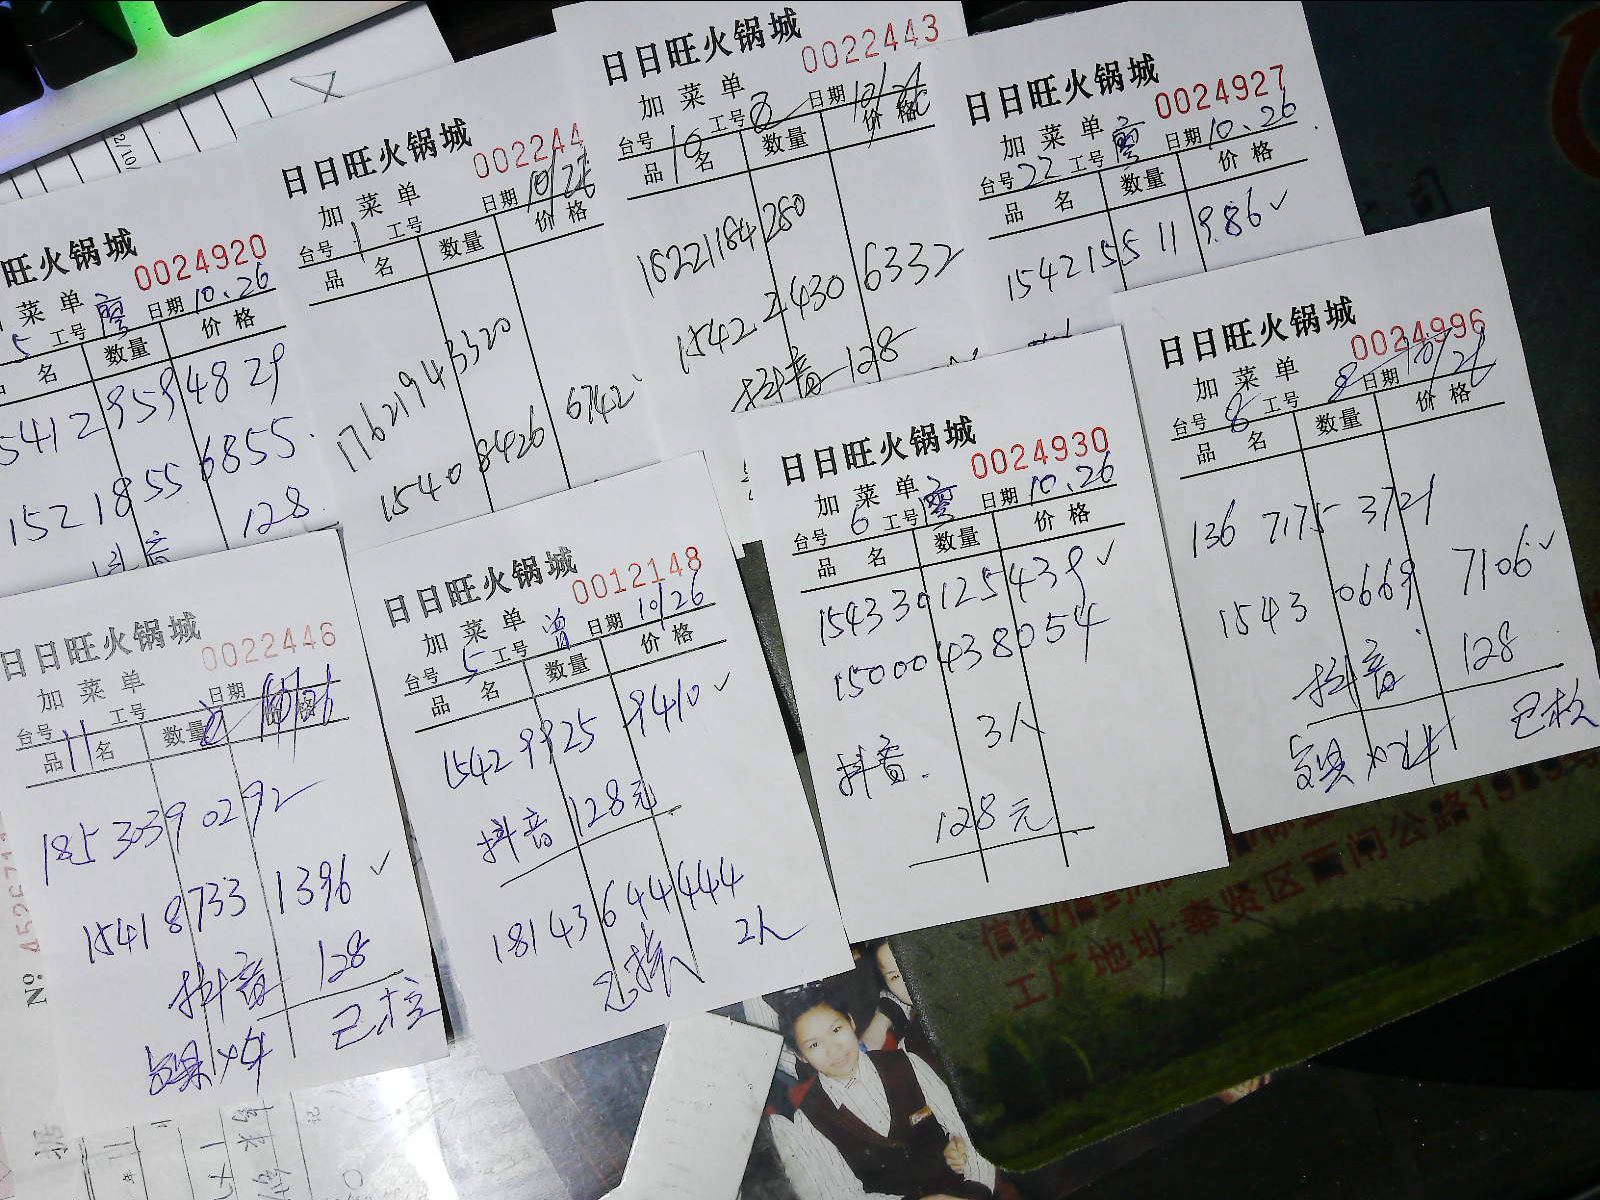 旺火锅城
0024920
菜单
5 工号 廖 日期 10.26
名 数量 价格
5412 959 4829
152 1855 6855
128
抖音
日日旺火锅城
002244
加菜单
日期 10/26
台号 1 工号
品名 数量 价格
17621943320
1540 8426 6742
日日旺火锅城
0022443
加菜单
日期
台号 10 工号
品名 数量 价格
16221184280
1542 2430 6332
抖音 128
日日旺火锅城
0024927
加菜单
台号 22 工号 廖 日期 10.26
品名 数量 价格
1542 155 11 986 ✓
日日旺火锅城
0022446
加菜单
日期
台号 11 工号
品名 数量 价格
185 3039 0292
1541 8733 1396 ✓
抖音 128
已核
日日旺火锅城
0012148
加菜单
台号 5 工号 曾 日期 10/26
品名 数量 价格
1542 9925 9410 ✓
抖音 128元
18143644444
2人
日日旺火锅城
0024930
加菜单
台号 6 工号 廖 日期 10.26
品名 数量 价格
154330125439 ✓
15000438054
3人
抖音.
128元
日日旺火锅城
0024996
加菜单
台号 8 工号 8 日期 10/26
品名 数量 价格
136 7175 3721
1543 0669 7106 ✓
抖音 128
已核
工厂地址:奉贤区